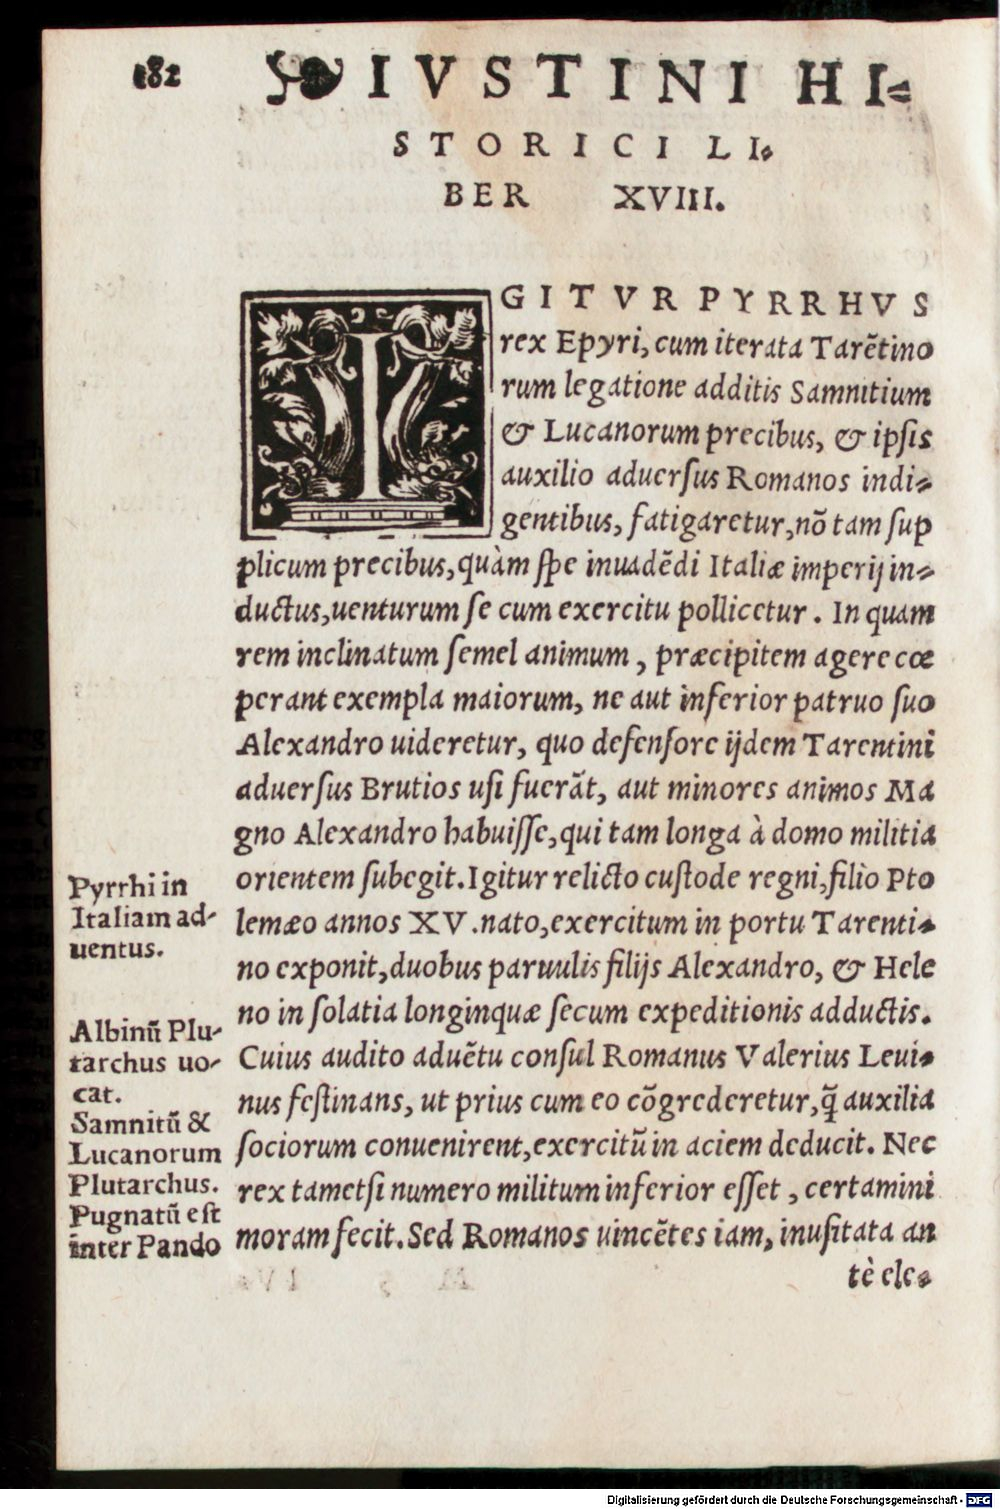 182
IVSTINI HI-
STORICI LI-
BER XVIII.
IGITVR PYRRHVS
rex Epyri, cum iterata Tarẽtino
rum legatione additis Samnitium
& Lucanorum precibus, & ipsis
auxilio aduersus Romanos indi-
gentibus, fatigaretur, nõ tam sup
plicum precibus, quàm spe inuadẽdi Italiæ imperij in-
ductus, uenturum se cum exercitu pollicetur. In quam
rem inclinatum semel animum, præcipitem agere cœ
perant exempla maiorum, ne aut inferior patruo suo
Alexandro uideretur, quo defensore ijdem Tarentini
aduersus Brutios usi fuerãt, aut minores animos Ma
gno Alexandro habuisse, qui tam longa à domo militia
orientem subegit. Igitur relicto custode regni, filio Pto
lemæo annos XV. nato, exercitum in portu Tarenti-
no exponit, duobus paruulis filijs Alexandro, & Hele
no in solatia longinquæ secum expeditionis adductis.
Cuius audito aduẽtu consul Romanus Valerius Leui-
nus festinans, ut prius cum eo cõgrederetur, q̃ auxilia
sociorum conuenirent, exercitũ in aciem deducit. Nec
rex tametsi numero militum inferior esset, certamini
moram fecit. Sed Romanos uincẽtes iam, inusitata an
tè ele-
Pyrrhi in
Italiam ad-
uentus.
Albinũ Plu-
tarchus uo-
cat.
Samnitũ &
Lucanorum
Plutarchus.
Pugnatũ est
inter Pando
Digitalisierung gefördert durch die Deutsche Forschungsgemeinschaft - DFG